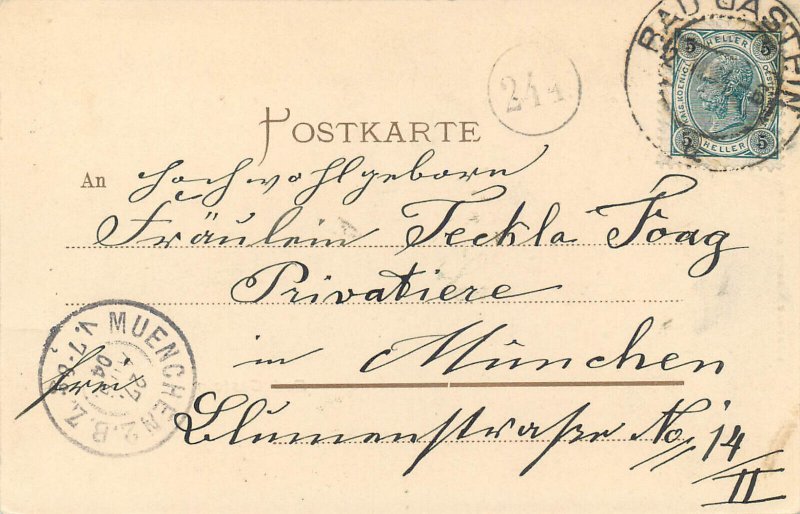 BAD GASTEIN
5 HELLER 5
KAIS. KOENIGL. OESTERR.
5 HELLER 5
244
POSTKARTE
An Hochwohlgeborn
Fräulein Teckla Foag
Privatiere
in München
frei
Blumenstraße No 14
II
MUENCHEN 2.B.Z.
V. 7-8
27
04